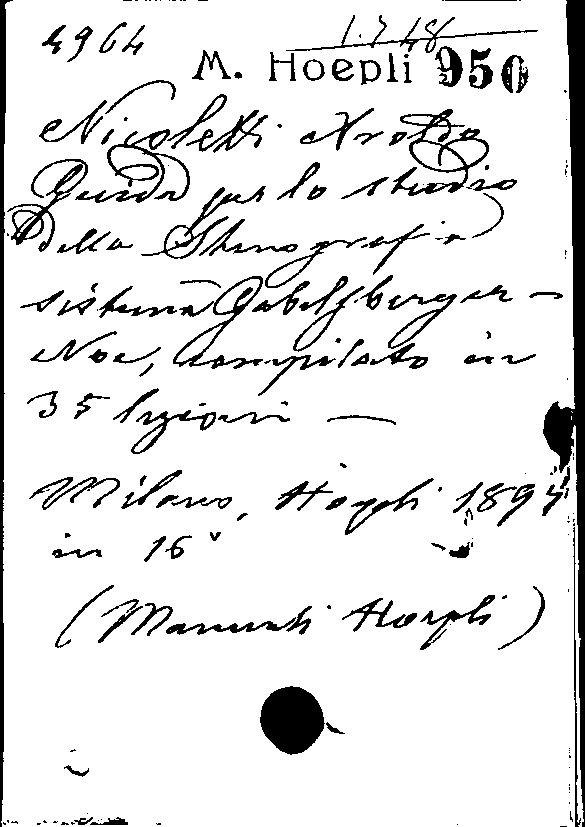 4964
1.7.48
M. Hoepli 950
Nicoletti Aroldo
Guida per lo studio
della Stenografia
sistema Gabelsberger -
Noe, compilato in
35 lezioni —
Milano, Hoepli 1894
in 16°
(Manuali Hoepli)